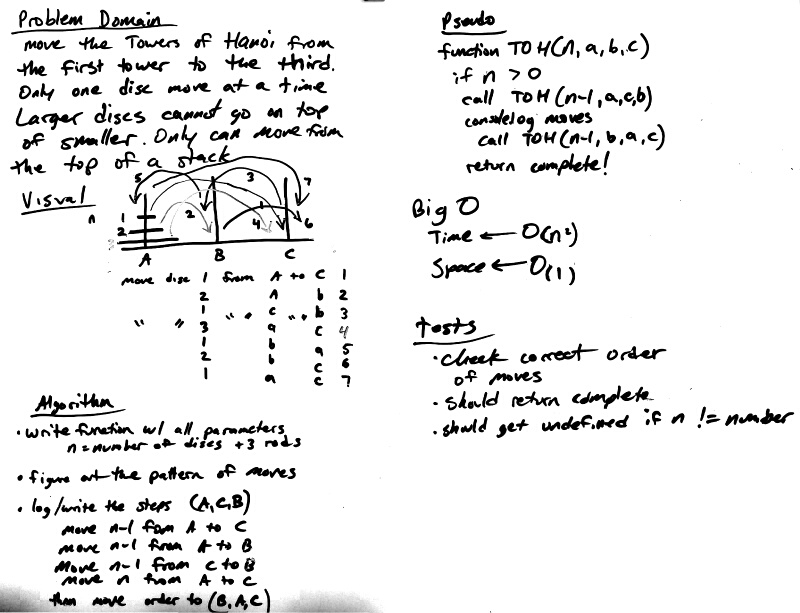 Problem Domain
move the Towers of Hanoi from
the first tower to the third.
Only one disc move at a time
Larger discs cannot go on top
of smaller. Only can move from
the top of a stack
Visual
n
1
2
3
5
1
3
7
2
1
4
6
A B C
move disc 1 from A to C 1
2 A b 2
1 c b 3
" " 3 " " a " " c 4
1 b a 5
2 b c 6
1 a c 7
Algorithm
• write function w/ all parameters
n = number of discs + 3 rods
• figure out the pattern of moves
• log/write the steps (A,C,B)
move n-1 from A to C
move n-1 from A to B
Move n-1 from C to B
move n from A to C
then move order to (B,A,C)
Pseudo
function TOH(n,a,b,c)
if n > 0
call TOH(n-1,a,c,b)
console log moves
call TOH(n-1,b,a,c)
return complete!
Big O
Time ← O(n²)
Space ← O(1)
tests
• check correct order
of moves
• should return complete
• should get undefined if n != number